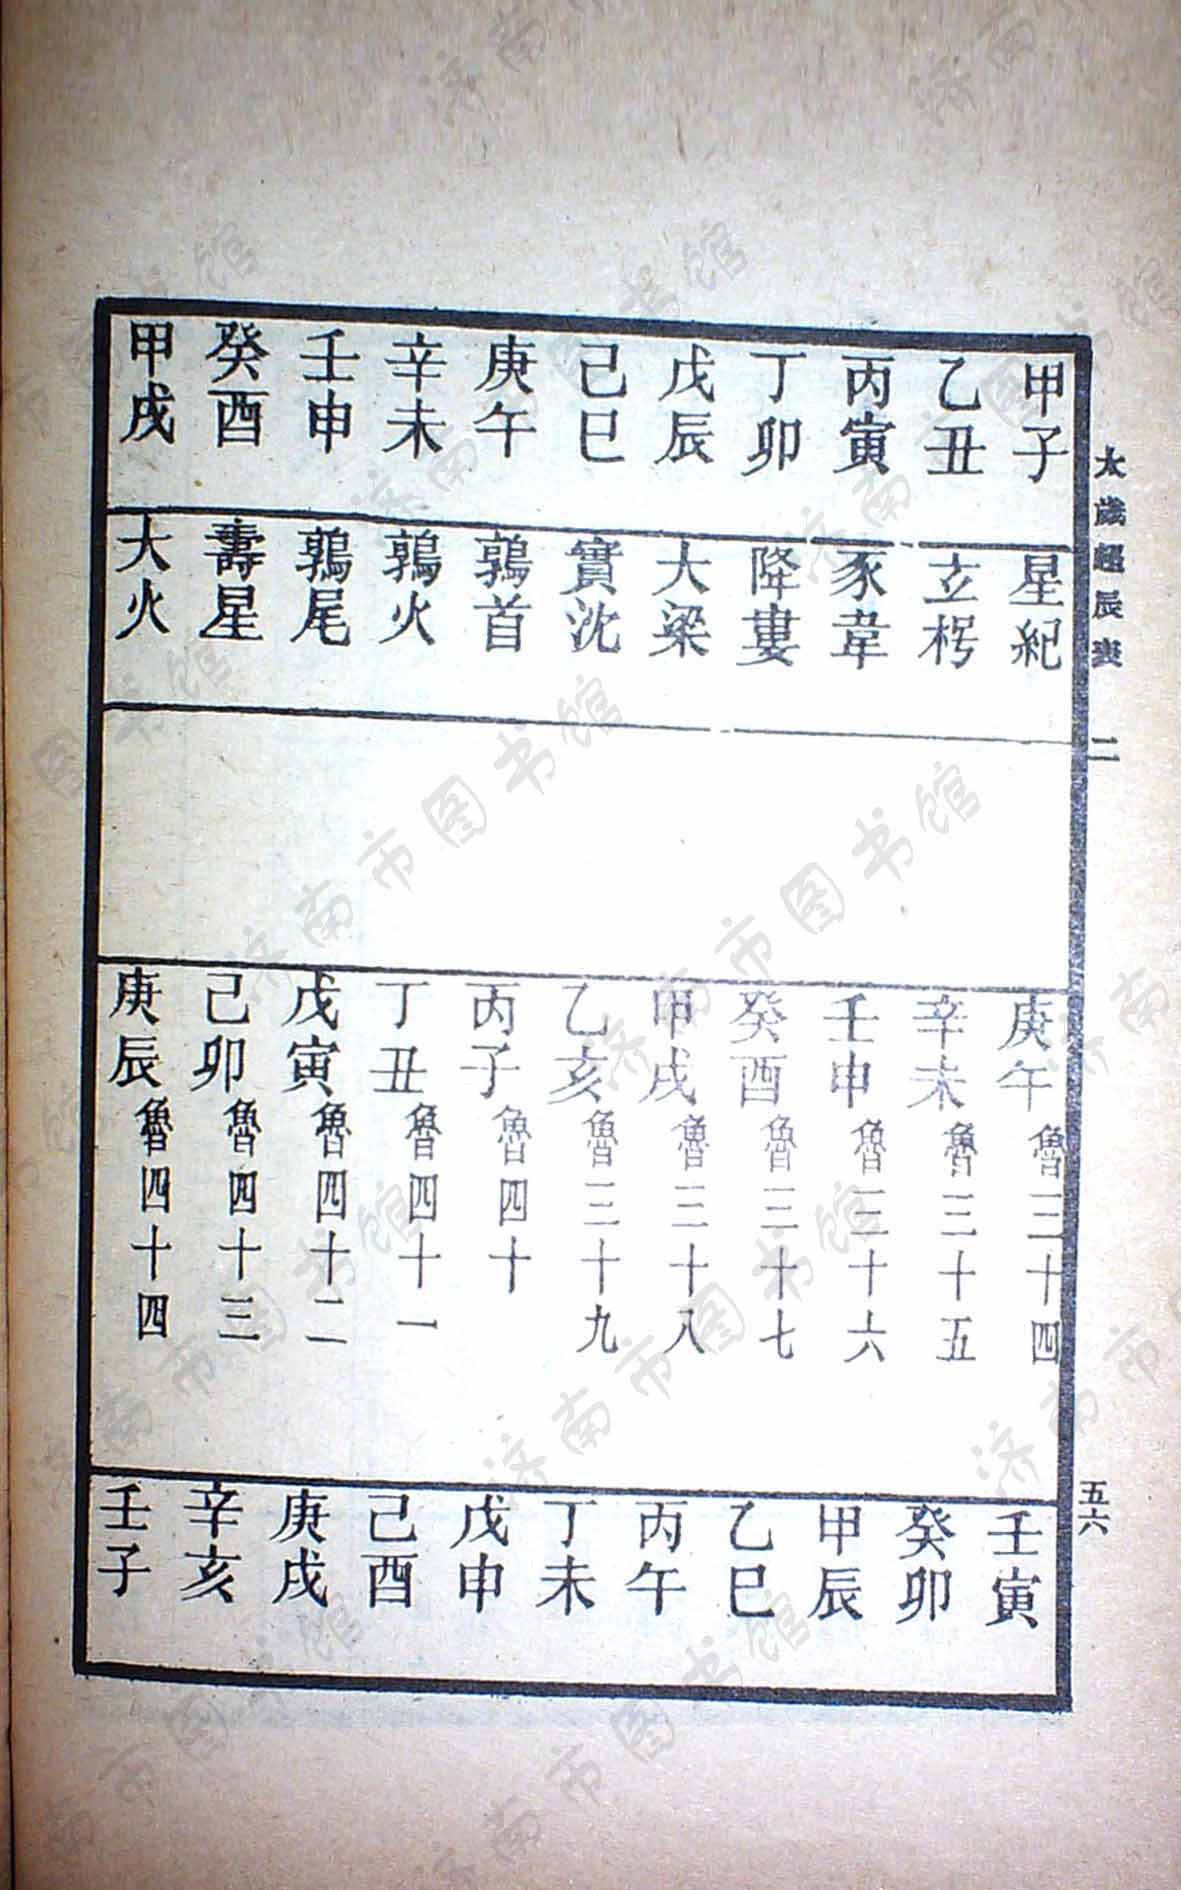 太歲超辰表 二 五六
甲子 星紀 庚午魯三十四 壬寅
乙丑 玄枵 辛未魯三十五 癸卯
丙寅 豕韋 壬申魯三十六 甲辰
丁卯 降婁 癸酉魯三十七 乙巳
戊辰 大梁 甲戌魯三十八 丙午
己巳 實沈 乙亥魯三十九 丁未
庚午 鶉首 丙子魯四十 戊申
辛未 鶉火 丁丑魯四十一 己酉
壬申 鶉尾 戊寅魯四十二 庚戌
癸酉 壽星 己卯魯四十三 辛亥
甲戌 大火 庚辰魯四十四 壬子
济南市图书馆